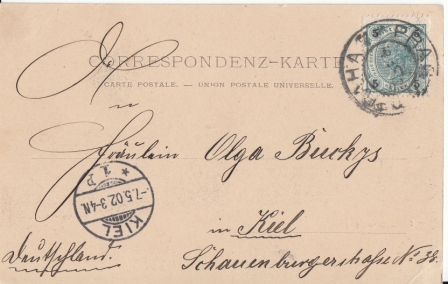 CORRESPONDENZ-KARTE
CARTE POSTALE. — UNION POSTALE UNIVERSELLE.
PRAG
PRAHA
An
Fräulein Olga Buckys
in Kiel
Schauenburgerstrasse No 38.
Deutschland.
* 1 P
-7.5.02.3-4N.
KIEL